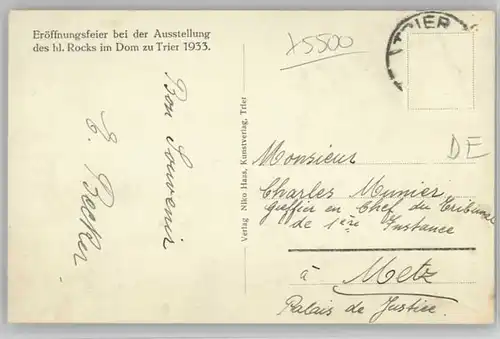 Eröffnungsfeier bei der Ausstellung
des hl. Rocks im Dom zu Trier 1933.
Bon Souvenir
E. Becker
Verlag Niko Haas, Kunstverlag, Trier
x5500
TRIER
DE
Monsieur
Charles Munier
Geffier en Chef du Tribunal
de 1ère Instance
à Metz
Palais de Justice.